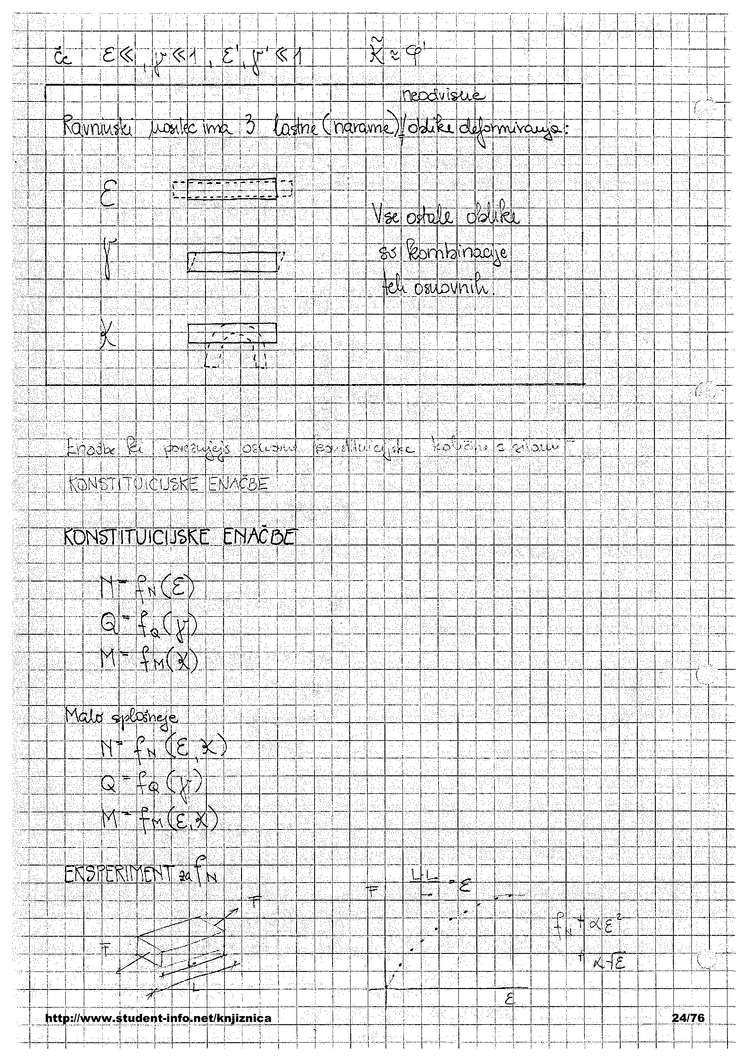 če ε≪, γ≪1, ε', γ'≪1 κ̃ ≈ φ'
neodvisne
Ravninski nosilec ima 3 lastne (naravne) / oblike deformiranja:
ε
γ
κ
Vse ostale oblike
so kombinacije
teh osnovnih.
Enačbe ki povezujejo osnovne konstituicijske količine s silami -
KONSTITUICIJSKE ENAČBE
KONSTITUICIJSKE ENAČBE
N = f_N(ε)
Q = f_Q(γ)
M = f_M(κ)
Malo splošneje
N = f_N(ε, κ)
Q = f_Q(γ)
M = f_M(ε, κ)
EKSPERIMENT za f_N
F
F
L
F
= ε
ε
f_N
αε²
α√ε
http://www.student-info.net/knjiznica
24/76